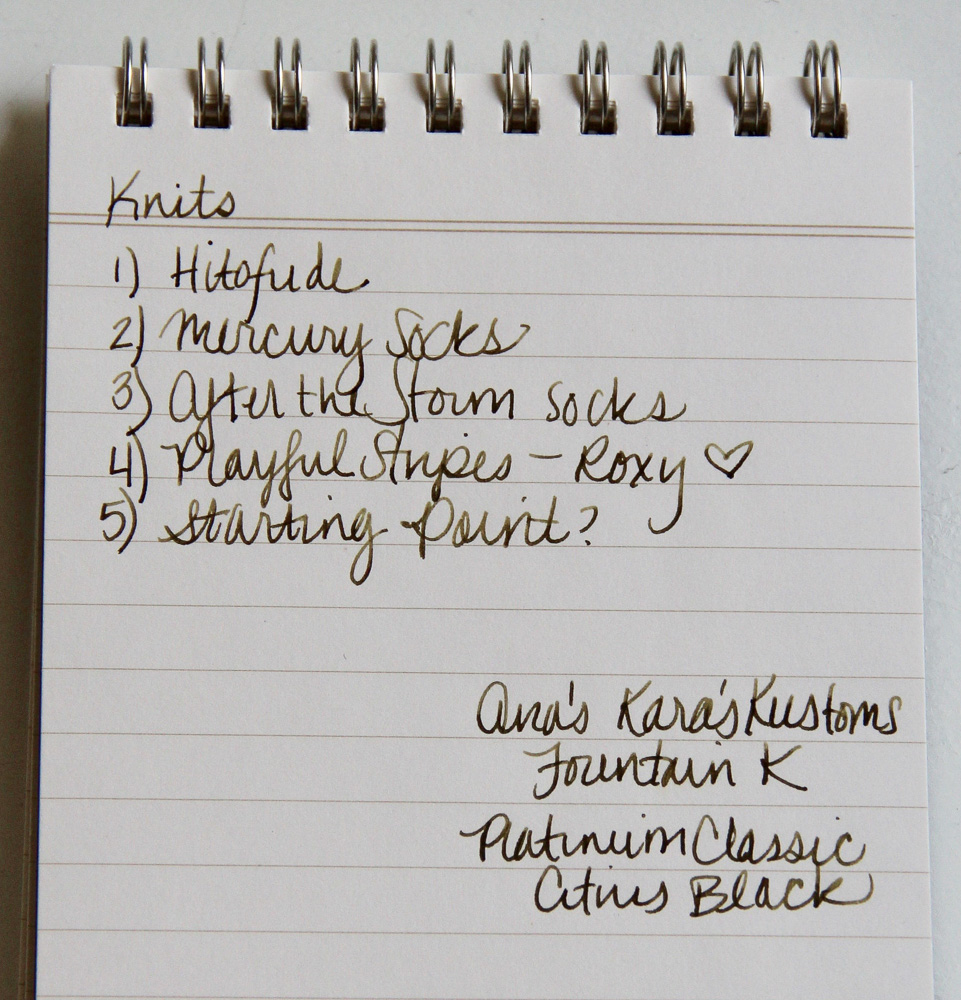 Knits
1) Hitofude
2) Mercury Socks
3) After the Storm Socks
4) Playful Stripes - Roxy ♡
5) Starting Point?
Ana's Kara's Kustoms
Fountain K
Platinum Classic
Citrus Black